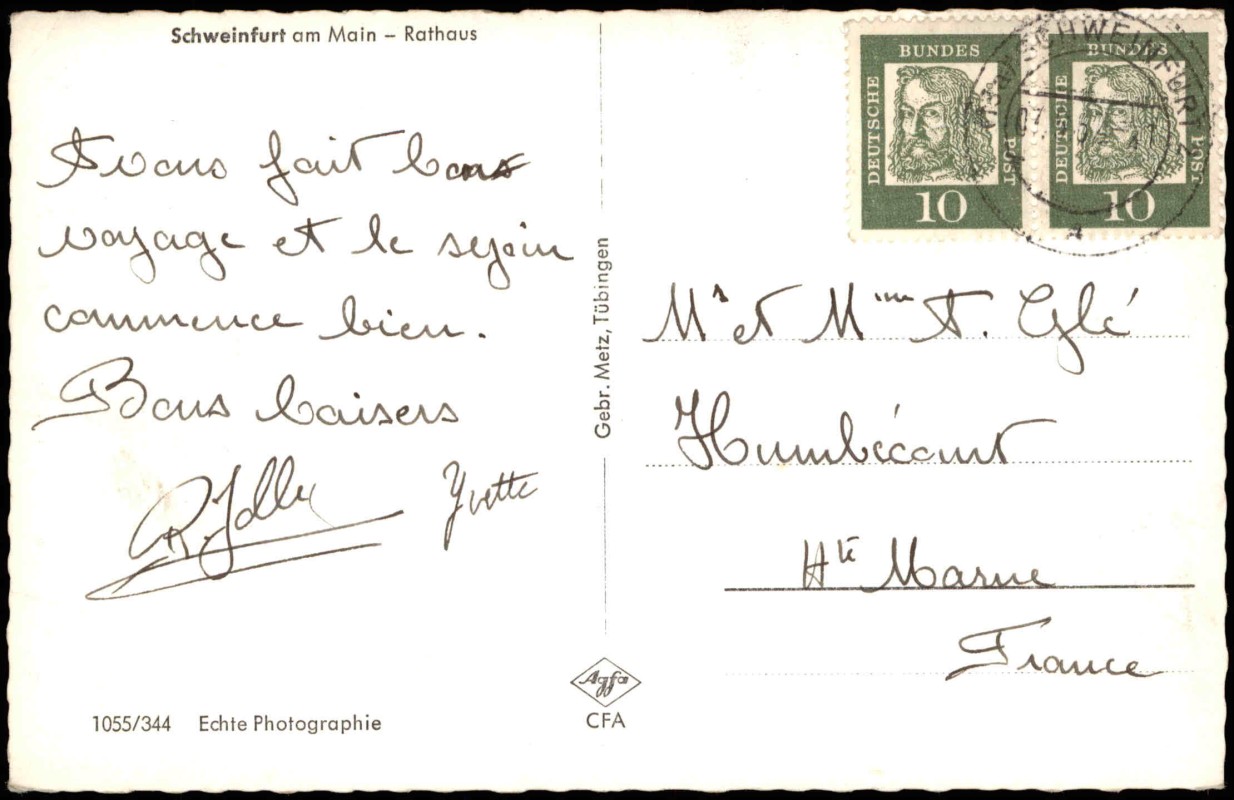 Schweinfurt am Main – Rathaus
Avons fait bon
voyage et le sejour
commence bien.
Bons baisers
R. Jolly Yvette
1055/344 Echte Photographie
Gebr. Metz, Tübingen
Agfa
CFA
DEUTSCHE BUNDES POST
10
DEUTSCHE BUNDES POST
10
SCHWEINFURT
A
Mr et Mme A. Glé
Humbécourt
Hte Marne
France